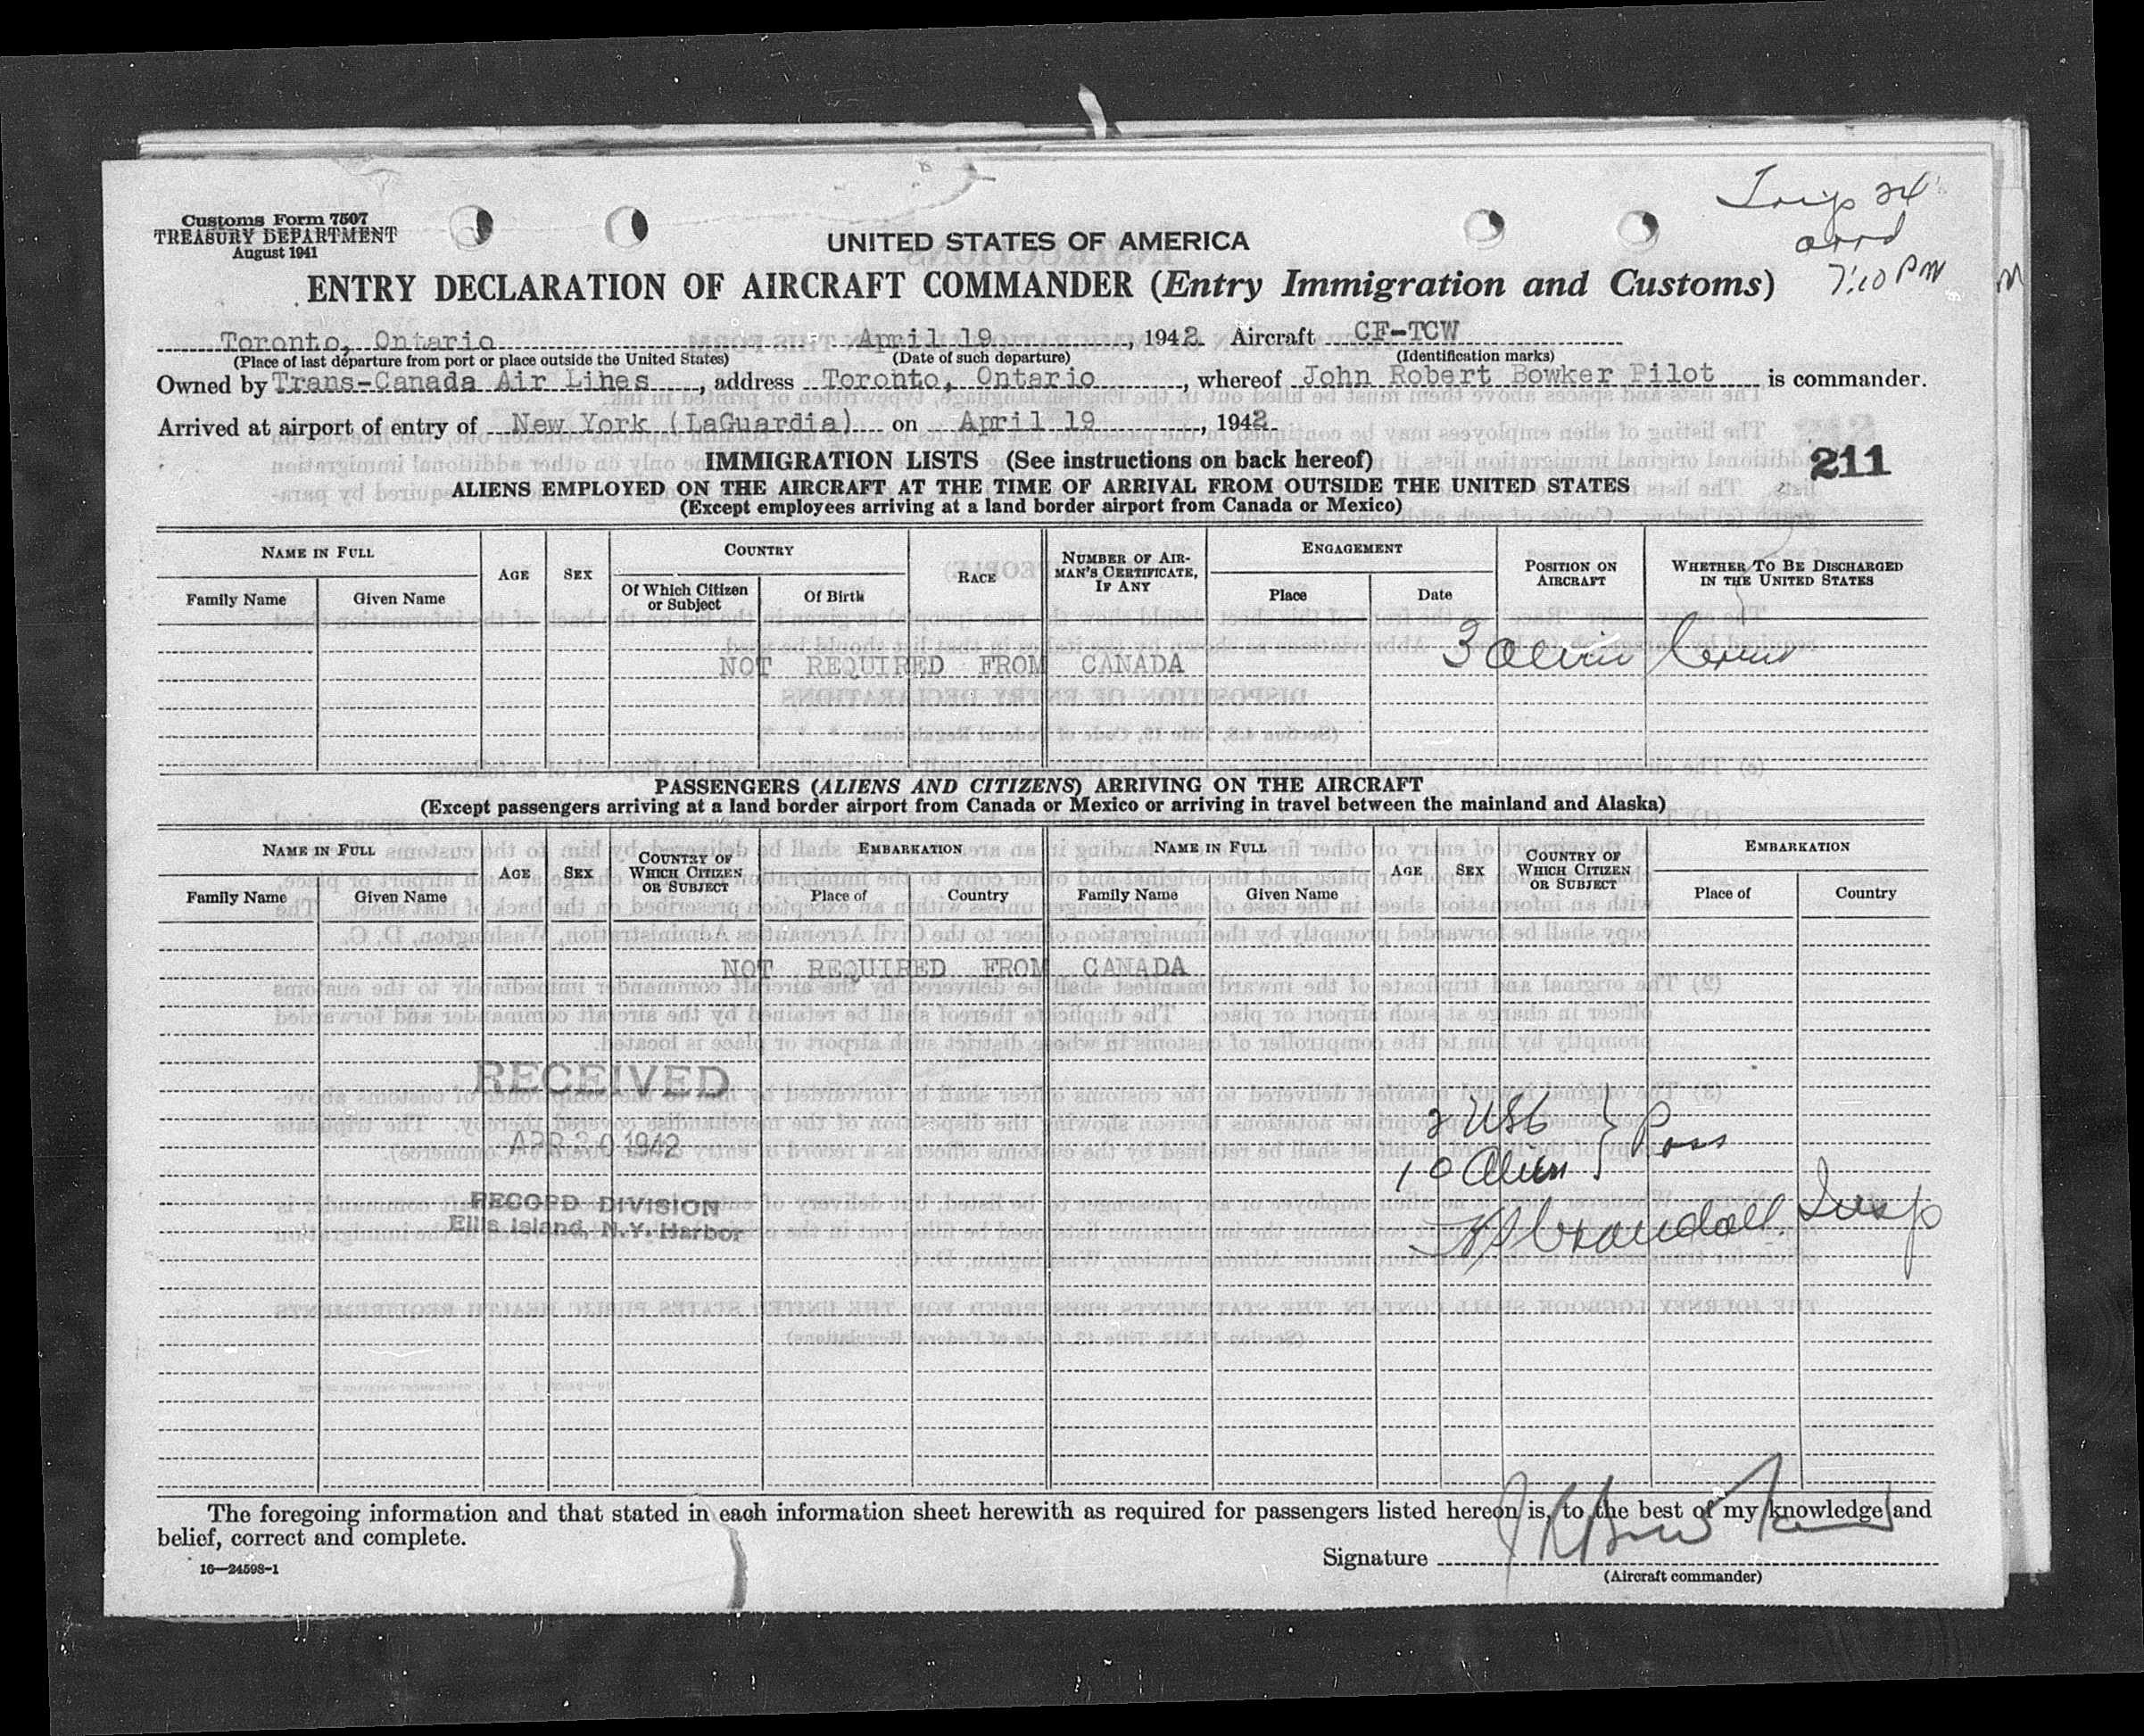 Trip 24
arrd
7:10 PM
Customs Form 7507
TREASURY DEPARTMENT
August 1941
UNITED STATES OF AMERICA
ENTRY DECLARATION OF AIRCRAFT COMMANDER (Entry Immigration and Customs)
Toronto, Ontario April 19, 1942 Aircraft CF-TCW
(Place of last departure from port or place outside the United States) (Date of such departure) (Identification marks)
Owned by Trans-Canada Air Lines, address Toronto, Ontario, whereof John Robert Bowker Pilot is commander.
Arrived at airport of entry of New York (LaGuardia) on April 19, 1942
IMMIGRATION LISTS (See instructions on back hereof)
211
ALIENS EMPLOYED ON THE AIRCRAFT AT THE TIME OF ARRIVAL FROM OUTSIDE THE UNITED STATES
(Except employees arriving at a land border airport from Canada or Mexico)
NAME IN FULL AGE SEX COUNTRY RACE NUMBER OF AIRMAN'S CERTIFICATE, IF ANY ENGAGEMENT POSITION ON AIRCRAFT WHETHER TO BE DISCHARGED IN THE UNITED STATES
Family Name Given Name Of Which Citizen or Subject Of Birth Place Date
3 Alien Crew
NOT REQUIRED FROM CANADA
PASSENGERS (ALIENS AND CITIZENS) ARRIVING ON THE AIRCRAFT
(Except passengers arriving at a land border airport from Canada or Mexico or arriving in travel between the mainland and Alaska)
NAME IN FULL AGE SEX COUNTRY OF WHICH CITIZEN OR SUBJECT EMBARKATION NAME IN FULL AGE SEX COUNTRY OF WHICH CITIZEN OR SUBJECT EMBARKATION
Family Name Given Name Place of Country Family Name Given Name Place of Country
NOT REQUIRED FROM CANADA
RECEIVED
APR 20 1942
RECORD DIVISION
Ellis Island, N.Y. Harbor
2 USC
10 Alien } Pass
Crandall Insp
The foregoing information and that stated in each information sheet herewith as required for passengers listed hereon is, to the best of my knowledge and
belief, correct and complete.
16—24598-1
Signature J R Bowker
(Aircraft commander)